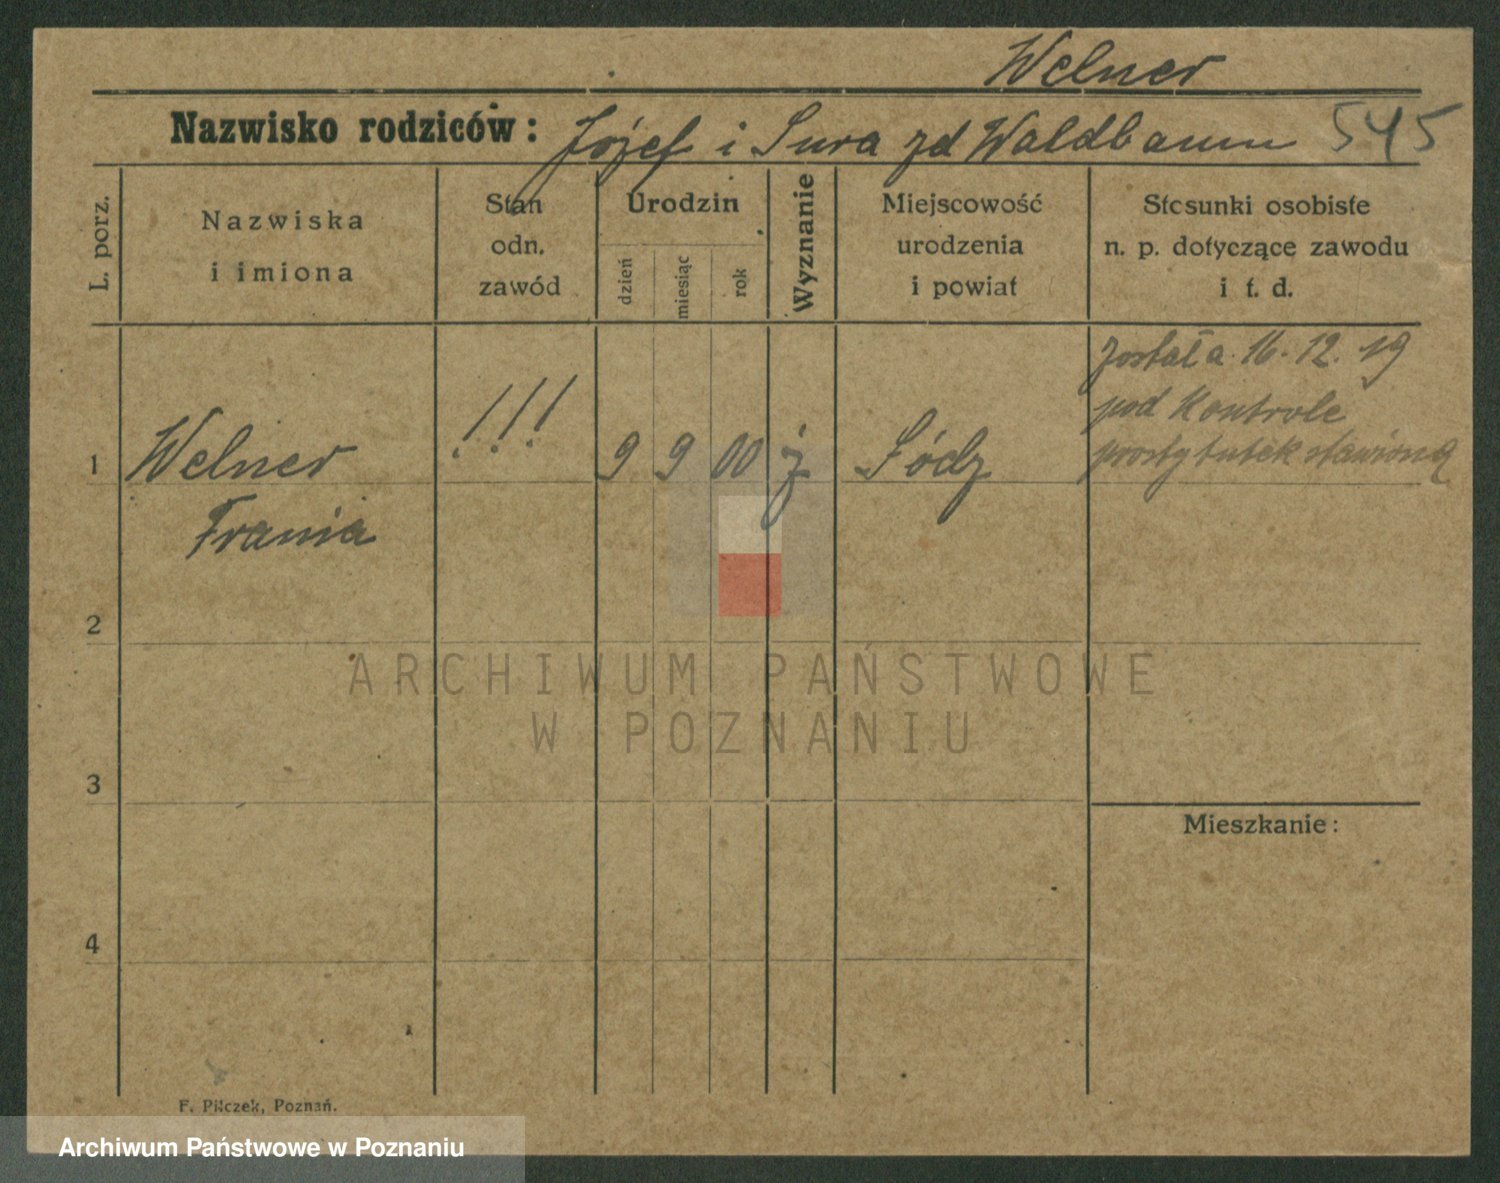 Welner
Nazwisko rodziców: Józef i Sura zd Waldbaum 545
L. porz.
Nazwiska
i imiona
Stan
odn.
zawód
Urodzin
dzień
miesiąc
rok
Wyznanie
Miejscowość
urodzenia
i powiat
Stosunki osobiste
n. p. dotyczące zawodu
i t. d.
została 16. 12. 19
pod Kontrole
prostytutek stawioną
1 Welner !!! 9 9 00 ż Łódz
Frania
2
ARCHIWUM PAŃSTWOWE
W POZNANIU
3
Mieszkanie:
4
F. Pilczek, Poznań.
Archiwum Państwowe w Poznaniu